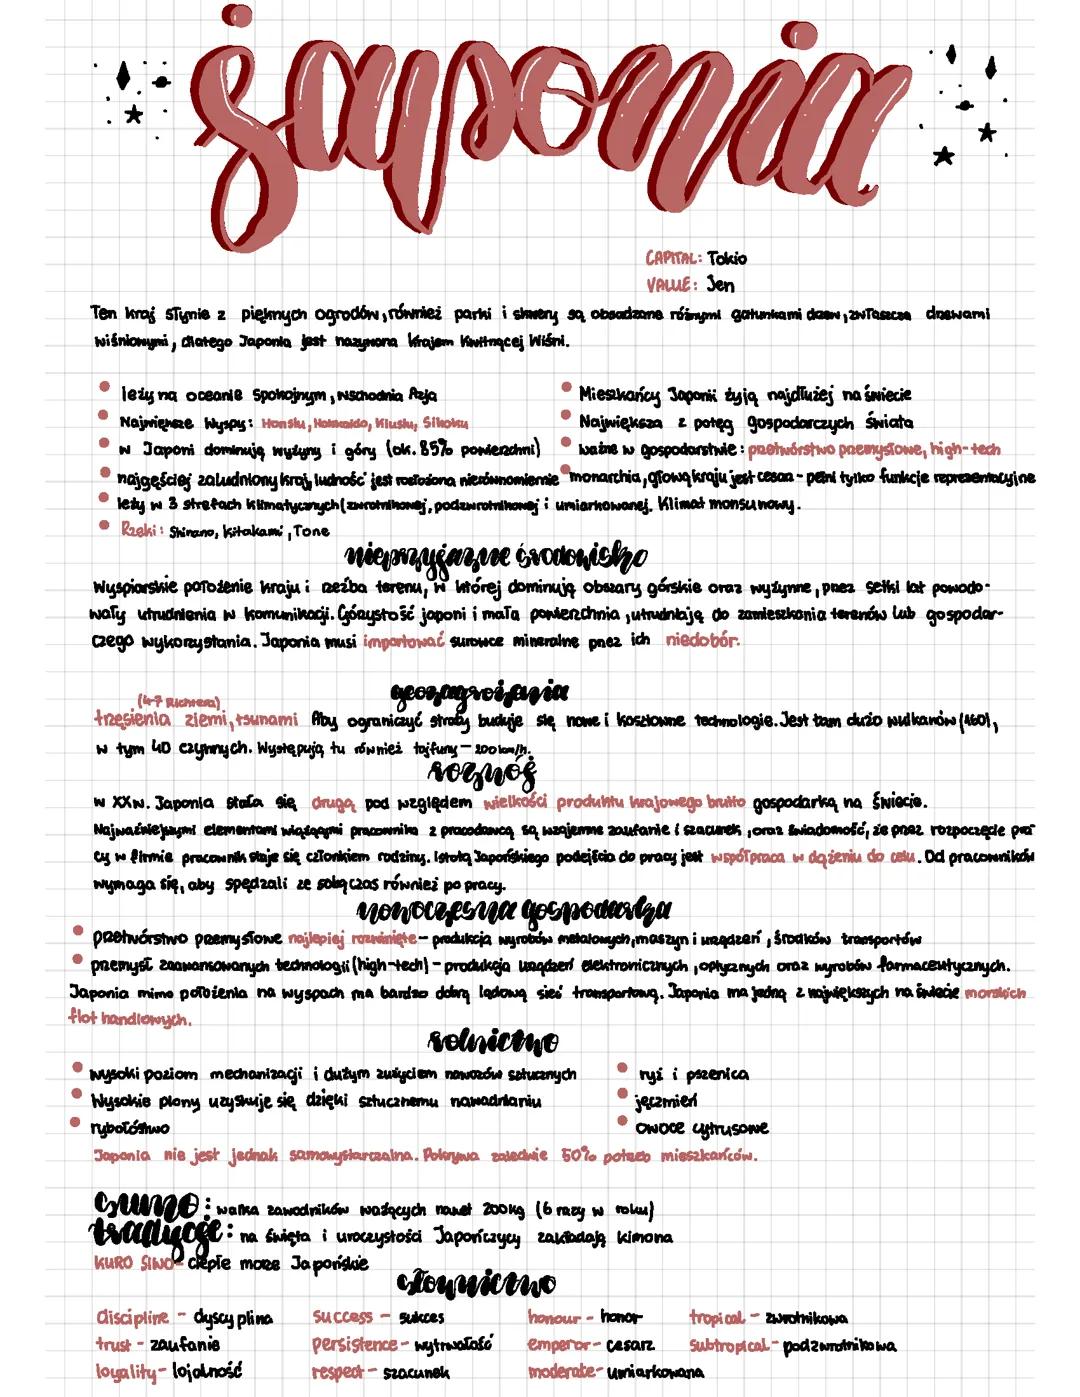 japonia
CAPITAL: Tokio
VALUE: Jen
Ten kraj słynie z pięknych ogrodów, również parki i skwery są obsadzone różnymi gatunkami drzew, zwłaszcza drzewami
wiśniowymi, dlatego Japonia jest nazywana Krajem Kwitnącej Wiśni.
leży na oceanie spokojnym, wschodnia Azja
Największe Wyspy: Honsiu, Hokkaido, Kiusiu, Sikoku
w Japoni dominują wyżyny i góry (ok. 85% powierzchni)
najgęściej zaludniony kraj, ludność jest rozłożona nierównomiernie
leży w 3 strefach klimatycznych (zwrotnikowej, podzwrotnikowej i umiarkowanej. Klimat monsunowy.
Rzeki: Shinano, Kitakami, Tone
Mieszkańcy Japonii żyją najdłużej na świecie
Największa z potęg gospodarczych świata
ważne w gospodarstwie: przetwórstwo przemysłowe, high-tech
monarchia, głową kraju jest cesarz - pełni tylko funkcje reprezentacyjne
nieprzyjazne środowisko
Wyspiarskie położenie kraju i rzeźba terenu, w której dominują obszary górskie oraz wyżynne, przez setki lat powodo-
wały utrudnienia w komunikacji. Górzystość japoni i mała powierzchnia, utrudniają do zamieszkania terenów lub gospodar-
czego wykorzystania. Japonia musi importować surowce mineralne przez ich niedobór.
geozagrożenia
(4-7 Richtera)
trzęsienia ziemi, tsunami Aby ograniczyć straty buduje się nowe i kosztowne technologie. Jest tam dużo wulkanów (160),
w tym 40 czynnych. Występują tu również tajfuny - 200km/h.
rozwój
w XXw. Japonia stała się drugą pod względem wielkości produktu krajowego brutto gospodarką na świecie.
Najważniejszymi elementami wiążącymi pracownika z pracodawcą są wzajemne zaufanie i szacunek, oraz świadomość, że przez rozpoczęcie pra
cy w firmie pracownik staje się członkiem rodziny. Istotą Japońskiego podejścia do pracy jest współpraca w dążeniu do celu. Od pracowników
wymaga się, aby spędzali ze sobą czas również po pracy.
nowoczesna gospodarka
przetwórstwo przemysłowe najlepiej rozwinięte - produkcja wyrobów metalowych, maszyn i urządzeń, środków transportów
przemysł zaawansowanych technologii (high-tech) - produkcja urządzeń elektronicznych, optycznych oraz wyrobów farmaceutycznych.
Japonia mimo położenia na wyspach ma bardzo dobrą lądową sieć transportową. Japonia ma jedną z największych na świecie morskich
flot handlowych.
rolnictwo
wysoki poziom mechanizacji i dużym zużyciem nawozów sztucznych
Wysokie plony uzyskuje się dzięki sztucznemu nawadnianiu
rybołóstwo
ryż i pszenica
jęczmień
owoce cytrusowe
Japonia nie jest jednak samowystarczalna. Pokrywa zaledwie 50% potrzeb mieszkańców.
sumo: walka zawodników ważących nawet 200kg (6 razy w roku)
tradycje: na święta i uroczystości Japończycy zakładają kimona
KURO SIWO - ciepłe morze Japońskie
słownictwo
discipline - dyscyplina
success - sukces
honour - honor
tropical - zwrotnikowa
trust - zaufanie
persistence - wytrwałość
emperor - cesarz
subtropical - podzwrotnikowa
loyality - lojalność
respect - szacunek
moderate - umiarkowana